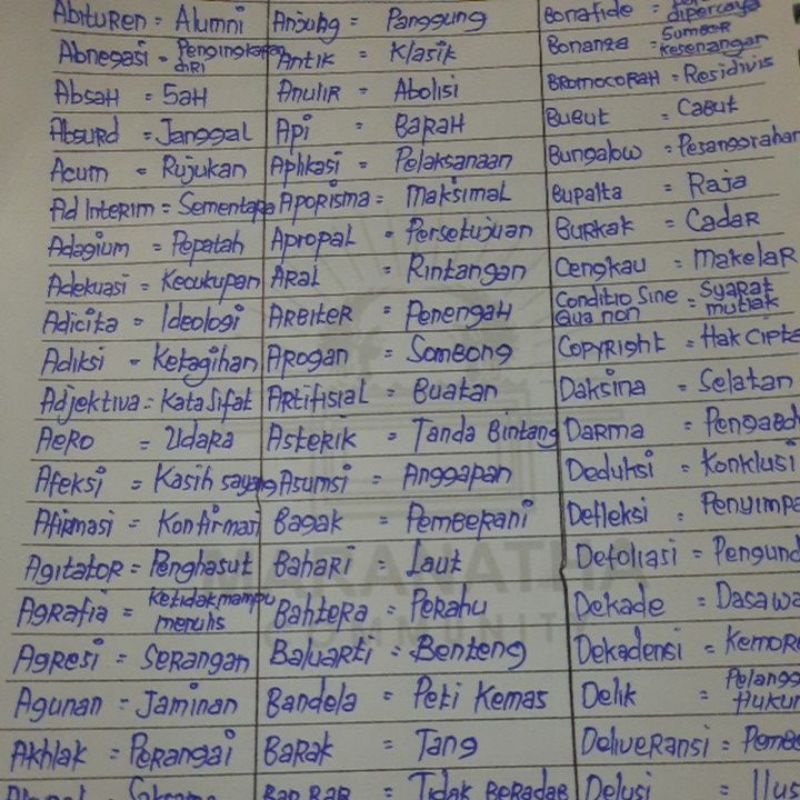 Abituren = Alumni
Abnegasi = Pengingkaran diri
Absah = Sah
Absurd = Janggal
Acum = Rujukan
Ad Interim = Sementara
Adagium = Pepatah
Adekuasi = Kecukupan
Adicita = Ideologi
Adiksi = Ketagihan
Adjektiva = Kata Sifat
Aero = Udara
Afeksi = Kasih sayang
Afirmasi = Konfirmasi
Agitator = Penghasut
Agrafia = Ketidakmampu menulis
Agresi = Serangan
Agunan = Jaminan
Akhlak = Perangai
Anjung = Panggung
Antik = Klasik
Anulir = Abolisi
Api = Barah
Aplikasi = Pelaksanaan
Aporisma = Maksimal
Apropal = Persetujuan
Aral = Rintangan
Arbiter = Penengah
Arogan = Sombong
Artifisial = Buatan
Asterik = Tanda Bintang
Asumsi = Anggapan
Bagak = Pemberani
Bahari = Laut
Bahtera = Perahu
Baluarti = Benteng
Bandela = Peti Kemas
Barak = Tang
Barbar = Tidak Beradab
Bonafide = dipercaya
Bonanza = Sumber kesenangan
Bromocorah = Residivis
Bubut = Cabut
Bungalow = Pesanggrahan
Bupalta = Raja
Burkak = Cadar
Cengkau = Makelar
Conditio Sine Qua non = Syarat mutlak
Copyright = Hak Cipta
Daksina = Selatan
Darma = Pengabd
Deduksi = Konklusi
Defleksi = Penyimpa
Defoliasi = Pengund
Dekade = Dasawa
Dekadensi = Kemoro
Delik = Pelangg Hukum
Deliveransi = Pembe
Delusi = Ilus
MARANATHA
COMMUNIT